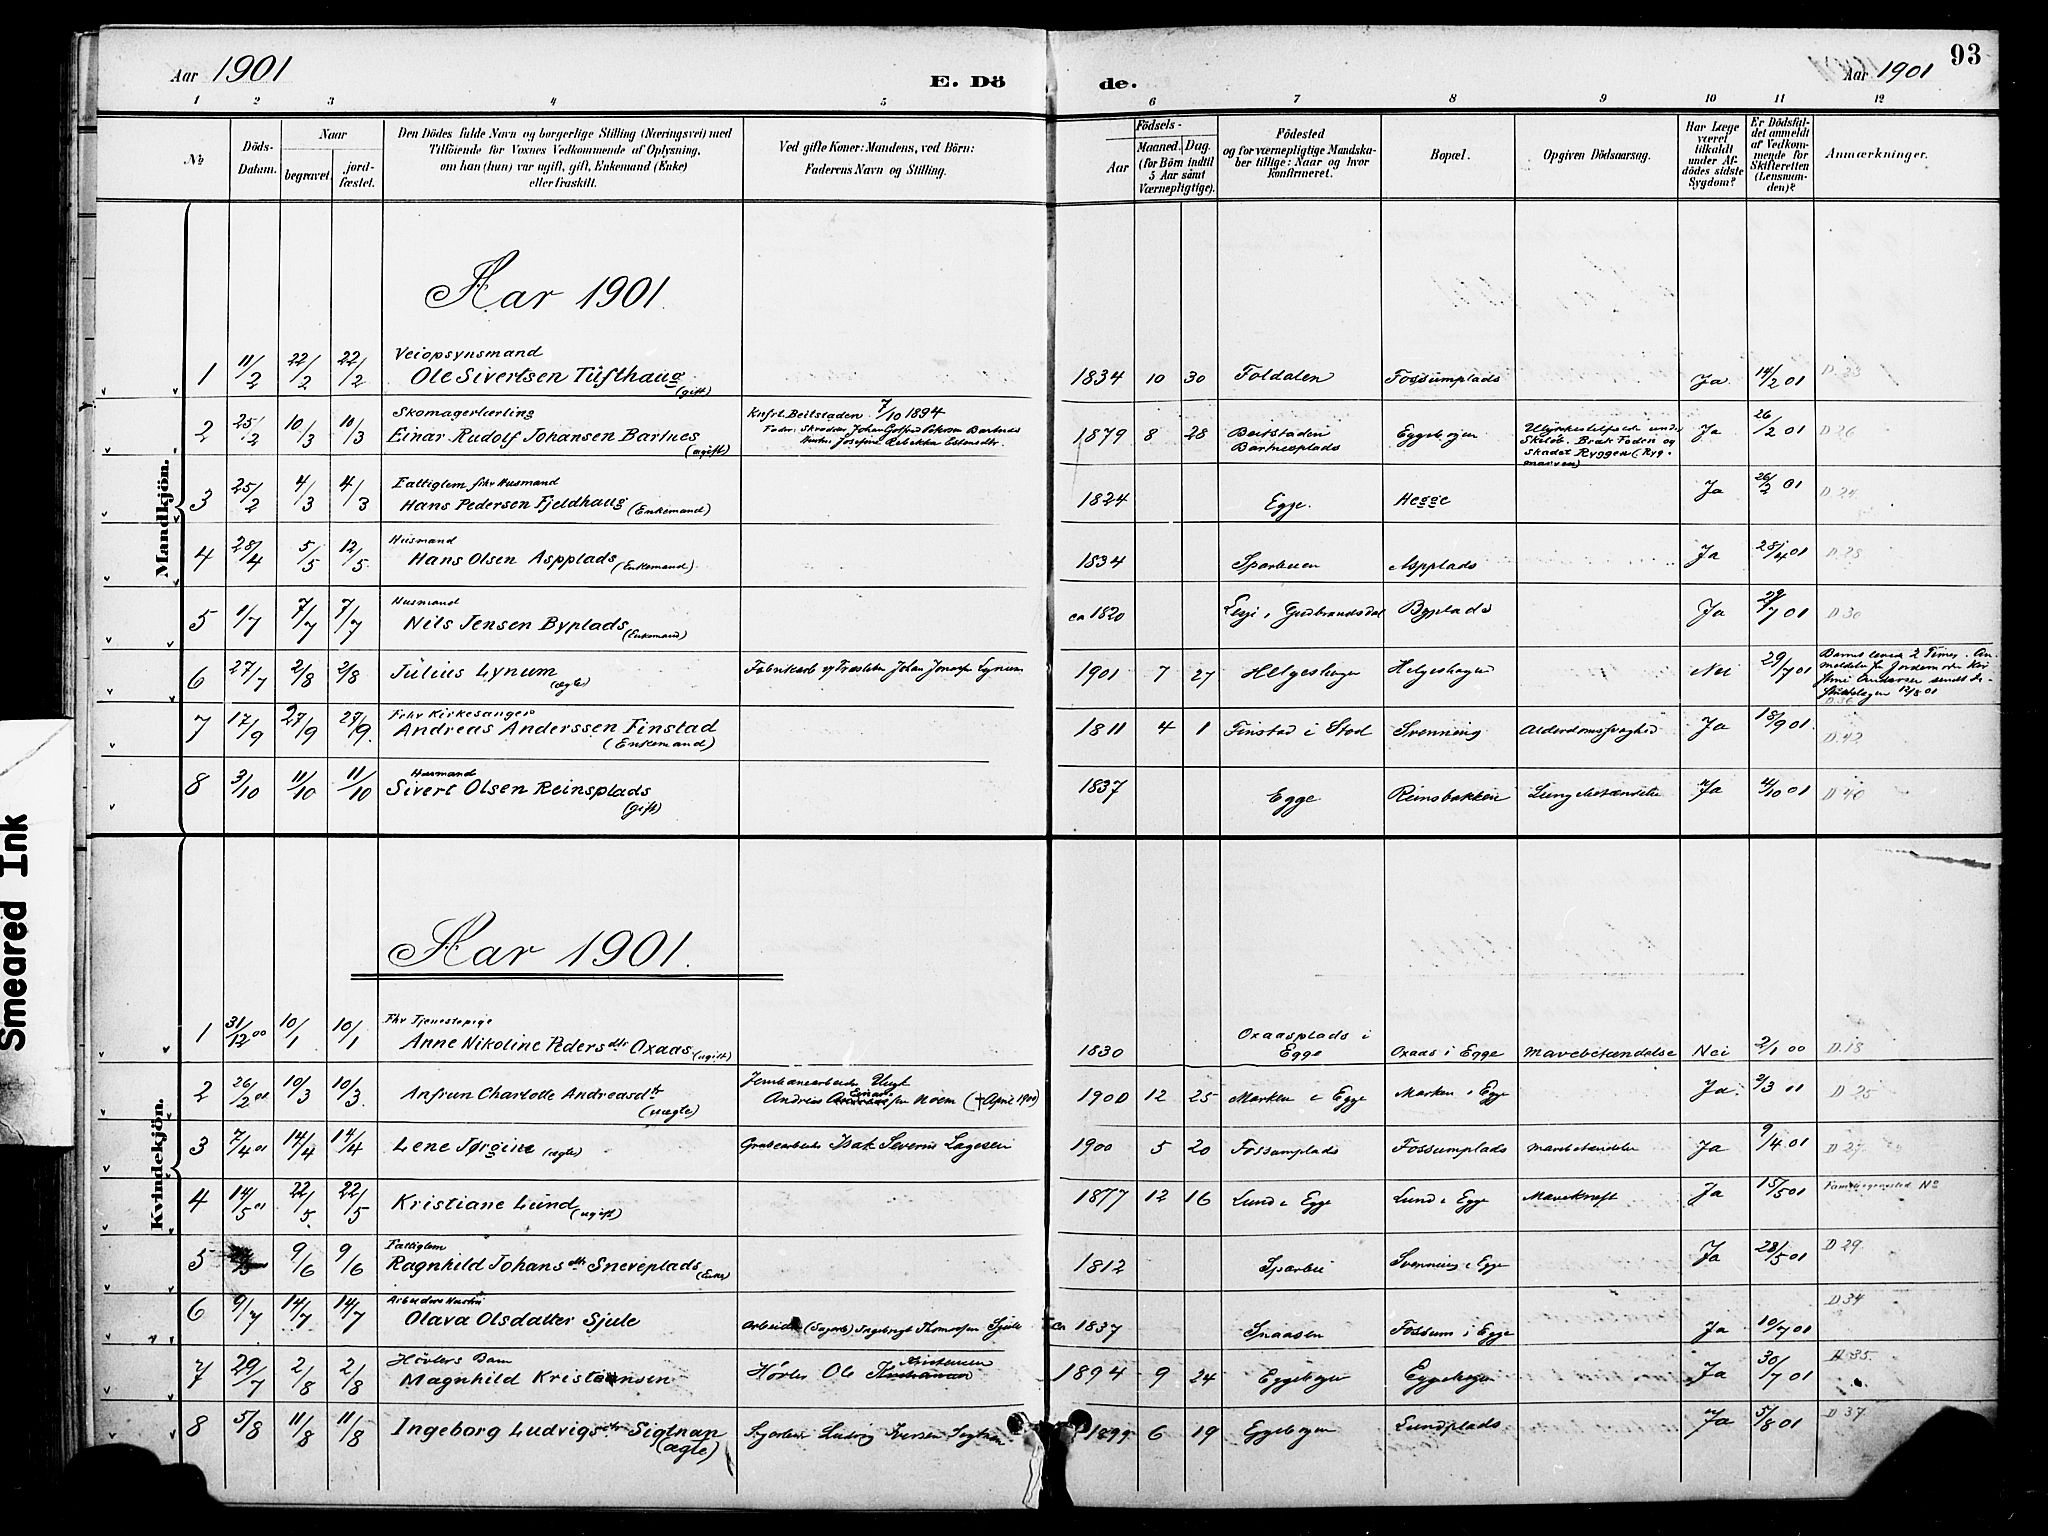 93
Aar 1901
E. Dö
de.
Aar 1901
1 2 3 4 5 6 7 8 9 10 11 12
No
Döds-
Datum.
Naar
begravet.
jord-
fæstet.
Den Dödes fulde Navn og borgerlige Stilling (Næringsvei) med
Tilföiende for Voxnes Vedkommende af Oplysning,
om han (hun) var ugift, gift, Enkemand (Enke)
eller fraskilt.
Ved gifte Koner: Mandens, ved Börn:
Faderens Navn og Stilling.
Födsels-
Aar
Maaned.
Dag.
(for Börn indtil
5 Aar samt
Værnepligtige).
Födested
og for værnepligtige Mandska-
ber tillige: Naar og hvor
konfirmeret.
Bopæl.
Opgiven Dödsaarsag.
Har Læge
været
tilkaldt
under Af-
dödes sidste
Sygdom?
Er Dödsfal-
det anmeldt
af Vedkom-
mende for
Skifteretten
(Lensman-
den)?
Anmærkninger.
Mandkjön.
Aar 1901.
Veiopsynsmand
1 11/2 22/2 22/2 Ole Sivertsen Tüfthaug (gift) 1834 10 30 Foldalen Fossumplads Ja. 14/2 01 D. 23
Skomagerlærling Knfrt. Beitstaden 7/10 1894
2 25/2 10/3 10/3 Einar Rudolf Johansen Bartnes (ugift) 1879 8 28 Beitstaden Bartnesplads Eggebogen Ja 26/2 01 D 26
Skadet Ryggen (Ryg-
marven)
Fattiglem fhv Husmand
3 25/2 4/3 4/3 Hans Pedersen Fjeldhaug (Enkemand) 1824 Egge. Hegge Ja 26/2 01 D. 24
Husmand
4 28/4 5/5 12/5 Hans Olsen Aspplads (Enkemand) 1834 Sparbuen Aspplads Ja 28/4 01 D. 28
Husmand
5 1/7 7/7 7/7 Nils Jensen Byplads (Enkemand) ca 1820 Lesje i Gudbrandsdal Byplads Ja 7 01 D 30
6 27/7 2/8 2/8 Julius Lynum (ægte) 1901 7 27 Helgeshagen Helgeshagen Nei 29/7 01 Barnet levede 2 Timer.
Fhv Kirkesanger
7 17/9 27/9 27/9. Andreas Anderssen Finstad (Enkemand) 1811 4 1 Finstad i Stod Svenning Alderdomssvaghed Ja 18/9 01 D. 42
Husmand
8 3/10 11/10 11/10 Sivert Olsen Reinsplads (gift) 1837 Egge Reinsbakken Lungebetændelse Ja 4/10 01 D 40
Kvindekjön.
Aar 1901.
Fhv Tjenestepige
1 31/12 00 10/1 10/1 Anne Nikoline Pedersdtr Oxaas (ugift) 1830 Oxaasplads i Egge Oxaas i Egge Mavebetændelse Nei 2/1 00 D. 18
2 26/2 01 10/3 10/3 Anfrun Charlotte Andreasdtr (uægte) Andreas Noem († April 1900) 1900 12 25 Marken i Egge Marken i Egge Ja. 2/3 01 D 25
3 7/4 01 14/4 14/4 Lene Jørgine (ægte) Grubearbeider Isak Severin Lagesen 1900 5 20 Fossumplads Fossumplads Mavebetændelse Ja 9/4 01 D 27
4 14/5 01 22/5 22/5 Kristiane Lund (ugift) 1877 12 16 Lund i Egge Lund i Egge Mavekræft Ja 15/5 01 Familiegravsted No
Fattiglem
5 9/6 9/6 Ragnhild Johansdtr Sneveplads (Enke) 1812 Sparbu Svenning i Egge Ja 28/5 01 D 29.
Arbeiders Hustru
6 9/7 14/7 14/7 Olava Olsdatter Sjule Arbeider (Sagarb) Ingebrigt Thomassen Sjule ca 1837 Snaasen Fossum i Egge Ja 10/7 01 D 34
Hövlers Barn
7 29/7 2/8 2/8 Magnhild Kristiansen Hövler Ole Kristiansen 1894 9 24 Eggebogen Eggebogen Ja 30/7 01 D 35.
8 5/8 11/8 11/8 Ingeborg Ludvigsdtr Sigtnan (ægte) Ludvig Iversen Sigtnan 1899 6 19 Eggebogen Lundplads Ja 5/8 01 D 37
Smeared Ink